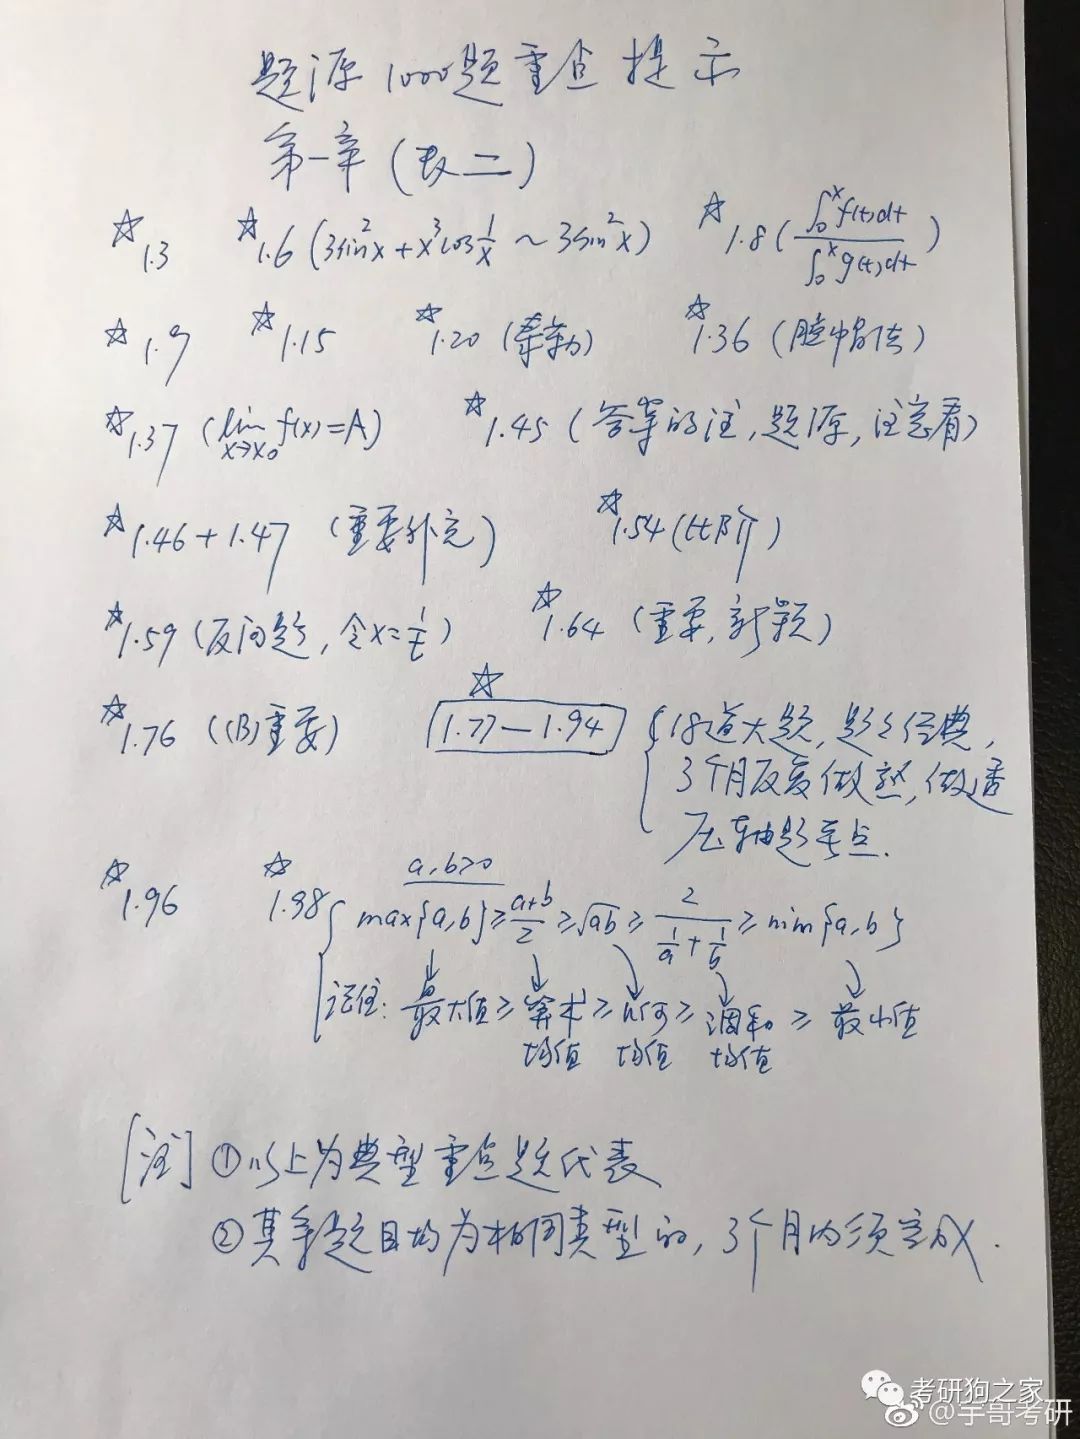 题源1000题重点提示
第一章(数二)
☆1.3 ☆1.6 (3sin²x+x³cos1/x ~ 3sin²x) ☆1.8 (∫₀ˣf(t)dt/∫₀ˣg(t)dt)
☆1.9 ☆1.15 ☆1.20 (泰勒) ☆1.36 (脱帽法)
☆1.37 (lim x→x₀ f(x)=A) ☆1.45 (答案的注,题源,注意看)
☆1.46+1.47 (重要补充) ☆1.54 (比阶)
☆1.59 (反问题,令x=1/t) ☆1.64 (重要,新颖)
☆1.76 ((B)重要) ☆1.77—1.94 {18道大题,题题经典,
3个月反复做熟,做透
压轴题考点.
☆1.96 ☆1.98 { a,b>0
max{a,b}≥(a+b)/2≥√ab≥2/(1/a+1/b)≥min{a,b}
记住:最大值≥算术均值≥几何均值≥调和均值≥最小值
[注]①以上为典型重点题代表
②其余题目均为相同类型的,3个月内须完成.
考研狗之家
@宇哥考研